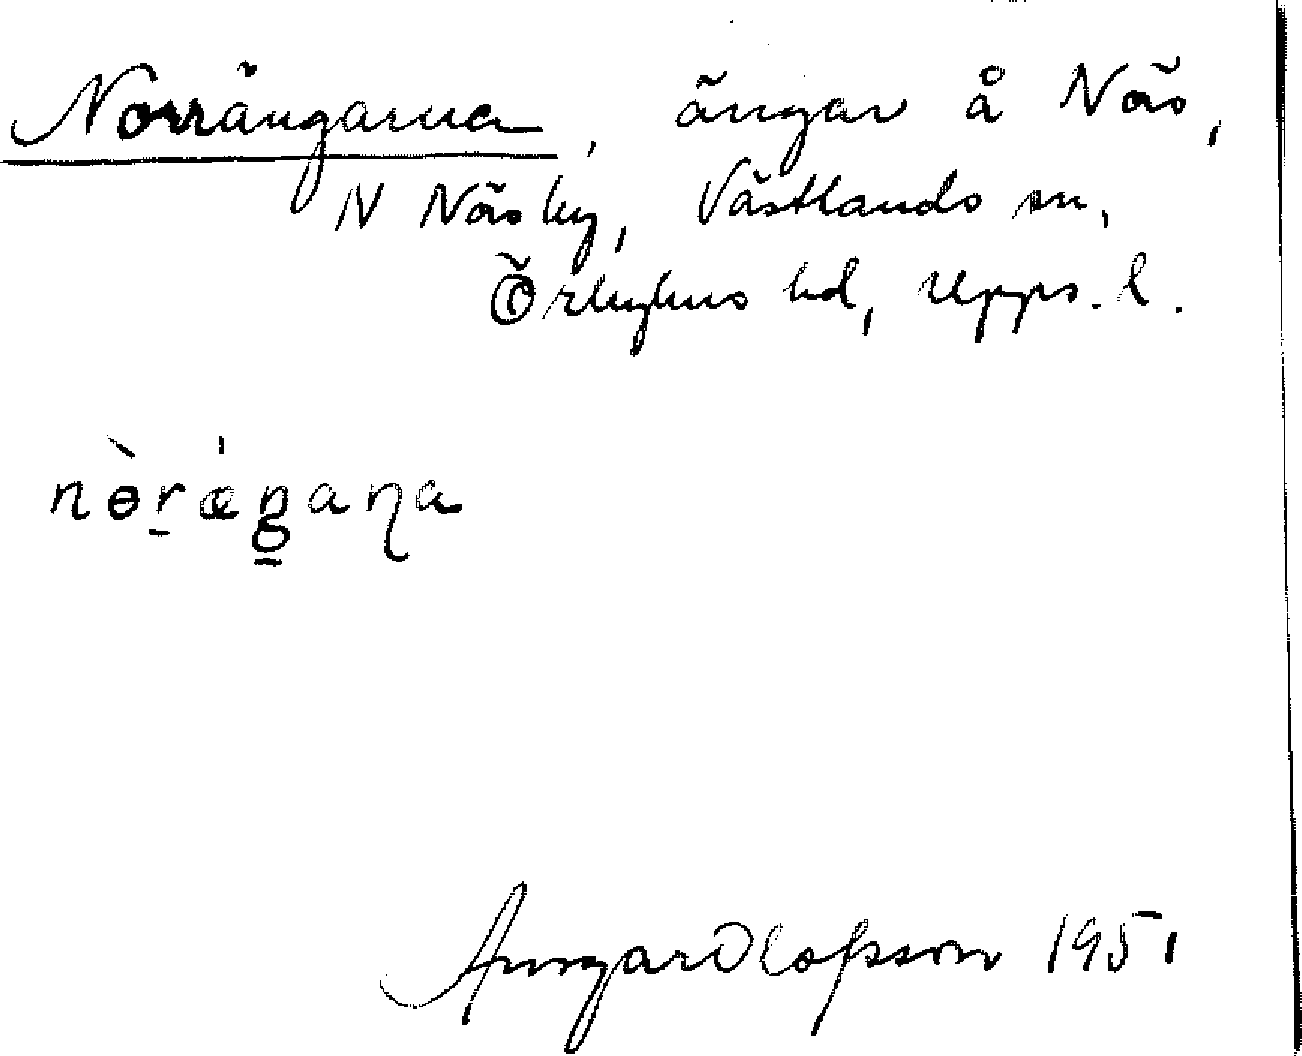 Norrängarna, ängar å Näs,
N Näsby, Västlands sn,
Örbyhus hd, Upps. l.
nòr̠ǽŋ̳aɳa
Ansgar Olofsson 1951